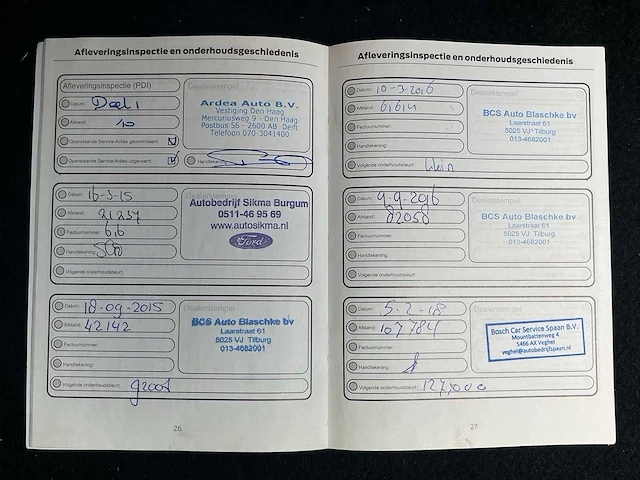 Afleveringsinspectie en onderhoudsgeschiedenis
Afleveringsinspectie (PDI)
Datum: Deel 1
Afstand: 10
Openstaande Service-Acties gecontroleerd:
Openstaande Service-Acties uitgevoerd:
Dealerstempel
Ardea Auto B.V.
Vestiging Den Haag
Mercuriusweg 9 - Den Haag
Postbus 56 - 2600 AB Delft
Telefoon 070-3041400
Handtekening:
Datum: 16-3-15
Afstand: 21237
Factuurnummer: 616
Handtekening:
Volgende onderhoudsbeurt:
Autobedrijf Sikma Burgum
0511-46 95 69
www.autosikma.nl
Ford
Datum: 18-09-2015
Afstand: 42142
Factuurnummer:
Handtekening:
Volgende onderhoudsbeurt: groot
Dealerstempel
BCS Auto Blaschke bv
Laarstraat 61
5025 VJ Tilburg
013-4682001
26
Afleveringsinspectie en onderhoudsgeschiedenis
Datum: 10-3-2016
Afstand: 61614
Factuurnummer:
Handtekening:
Volgende onderhoudsbeurt: klein
Dealerstempel
BCS Auto Blaschke bv
Laarstraat 61
5025 VJ Tilburg
013-4682001
Datum: 9-9-2016
Afstand: 82058
Factuurnummer:
Handtekening:
Volgende onderhoudsbeurt:
Dealerstempel
BCS Auto Blaschke bv
Laarstraat 61
5025 VJ Tilburg
013-4682001
Datum: 5-2-18
Afstand: 107784
Factuurnummer:
Handtekening:
Volgende onderhoudsbeurt: 127,000
Dealerstempel
Bosch Car Service Spaan B.V.
Mountbattenweg 4
5466 AX Veghel
veghel@autobedrijfspaan.nl
27